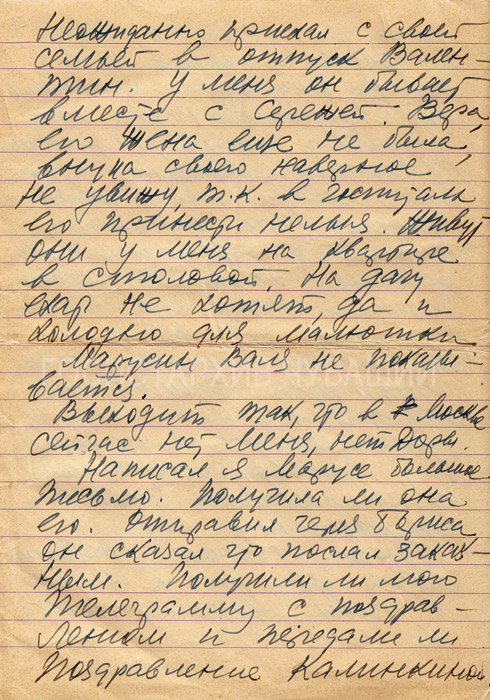 Неожиданно приехал с своей
семьей в отпуск Вален-
тин. У меня он бывает
вместе с Сережей. Вера,
его жена еще не была,
внука своего наверное
не увижу, т.к. в госпиталь
его принести нельзя. Живут
они у меня на квартире
в столовой. На дачу
ехать не хотят, да и
холодно для малютки
Марусин Валя не показы-
вается.
Выходит так, что в Москве
сейчас нет меня, нет Доры.
Написал я Марусе большое
письмо. Получила ли она
его. Отправил через Бориса,
он сказал что послал заказ-
ным. Получили ли мою
телеграмму с поздрав-
лением и передали ли
поздравление Калинкиной
АРХИВ ЧУВАШИИ